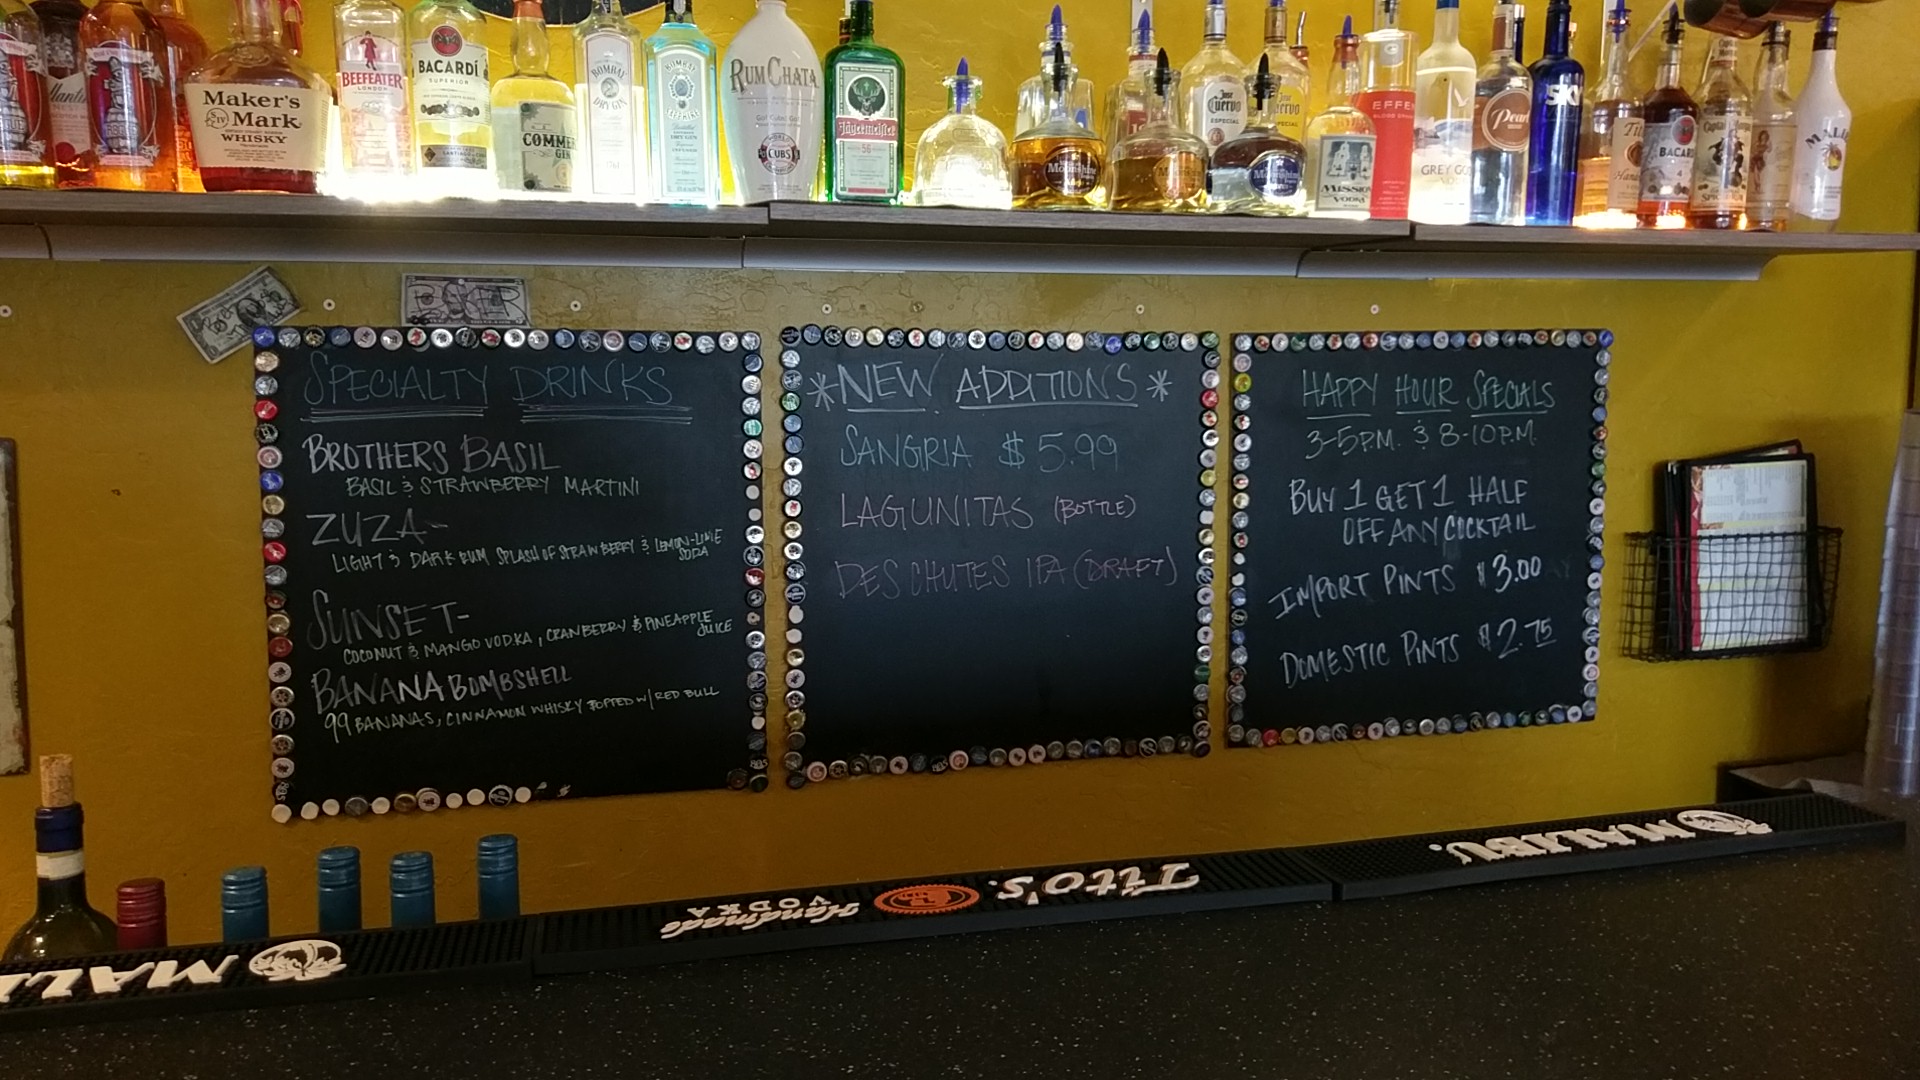 Maker's
Mark
WHISKY
BEEFEATER
LONDON
BACARDÍ
SUPERIOR
BOMBAY
DRY GIN
BOMBAY
RUMCHATA
CUBS
Jägermeister
Moonshine
Jose
Cuervo
ESPECIAL
MISSION
VODKA
GREY GO
Pearl
SKY
BACARDI
SPECIALTY DRINKS
BROTHERS BASIL
BASIL & STRAWBERRY MARTINI
ZUZA-
LIGHT & DARK RUM SPLASH OF STRAWBERRY & LEMON-LIME
SODA
SUNSET-
COCONUT & MANGO VODKA, CRANBERRY & PINEAPPLE
JUICE
BANANA BOMBSHELL
99 BANANAS, CINNAMON WHISKY TOPPED W/ RED BULL
*NEW ADDITIONS*
SANGRIA $5.99
LAGUNITAS (BOTTLE)
DESCHUTES IPA (DRAFT)
HAPPY HOUR SPECIALS
3-5P.M. & 8-10P.M.
BUY 1 GET 1 HALF
OFF ANY COCKTAIL
IMPORT PINTS $3.00
DOMESTIC PINTS $2.75
MALIBU
Tito's
Handmade
VODKA
MALI